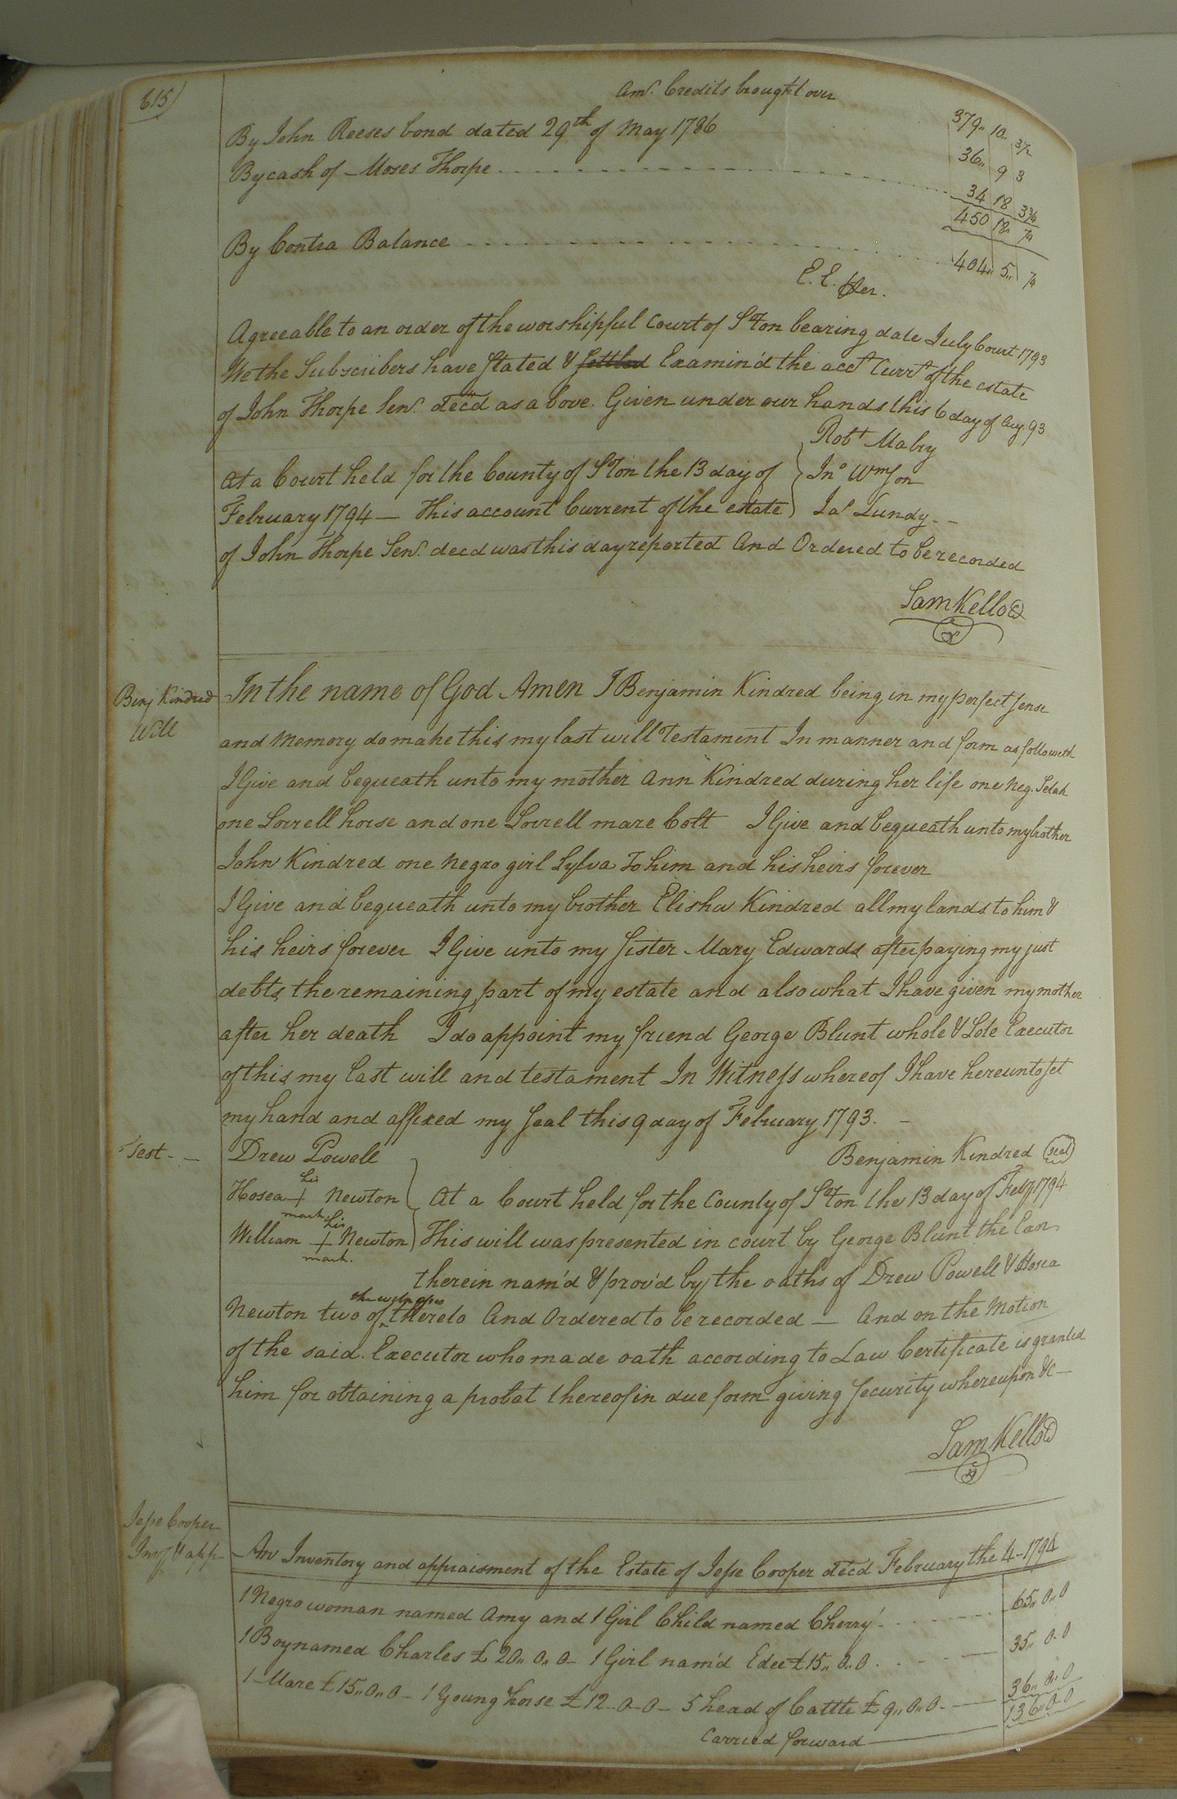 615)
Amt. Credits brought over 379" 10 3½
By John Reeses bond dated 29th of May 1786 36" 9 3
By cash of Moses Thorpe 34 18 3¾
450 18"
By Contra Balance 404" 5"
E. E. Per.
Agreeable to an order of the worshipful Court of Sºton bearing date July Court 1793
We the Subscribers have stated & settled Examin'd the acct Currt of the estate
of John Thorpe Senr. dec'd as above. Given under our hands this 6 day of Aug. 93
Robt Mabry
At a Court held for the County of Sºton the 13 day of } Jno Wmson
February 1794 — This account Current of the estate } Jas Lundy
of John Thorpe Senr. decd was this day reported And Ordered to be recorded
Sam Kello
Benj Kindred
Will
In the name of God Amen I Benjamin Kindred being in my perfect sense
and Memory do make this my last will Testament In manner and form as followeth
I Give and bequeath unto my mother Ann Kindred during her life one Neg.
one Sorrell horse and one Sorrell mare Colt I Give and bequeath unto my brother
John Kindred one negro girl Sylva To him and his heirs forever
I Give and bequeath unto my brother Elisha Kindred all my lands to him &
his heirs forever I Give unto my sister Mary Edwards after paying my just
debts, the remaining part of my estate and also what I have given my mother
after her death I do appoint my friend George Blunt whole & Sole Executor
of this my last will and testament In Witness whereof I have hereunto set
my hand and affixed my seal this 9 day of February 1793. —
Test - — Drew Powell Benjamin Kindred (seal)
Hosea his + mark Newton } At a Court held for the County of Sºton the 13 day of Feby. 1794
William his + mark Newton } This will was presented in court by George Blunt the
therein nam'd & prov'd by the oaths of Drew Powell & Hosea
Newton two of the witnesses thereto And Ordered to be recorded — And on the Motion
of the said Executor who made oath according to Law Certificate is granted
him for obtaining a probat thereof in due form giving security whereupon &c —
Sam Kello
Jesse Cooper
Invy & app
An Inventory and appraisment of the Estate of Jesse Cooper dec'd February the 4 - 1794
1 Negro woman named Amy and 1 Girl Child named Cherry 65" 0" 0
1 Boy named Charles £ 20" 0" 0 - 1 Girl nam'd Edee £ 15" 0" 0 35" 0-0
1 Mare £ 15" 0" 0 - 1 Young horse £ 12-0-0 - 5 head of Cattle £ 9" 0" 0 36" 0" 0
Carried forward 136" 0-0